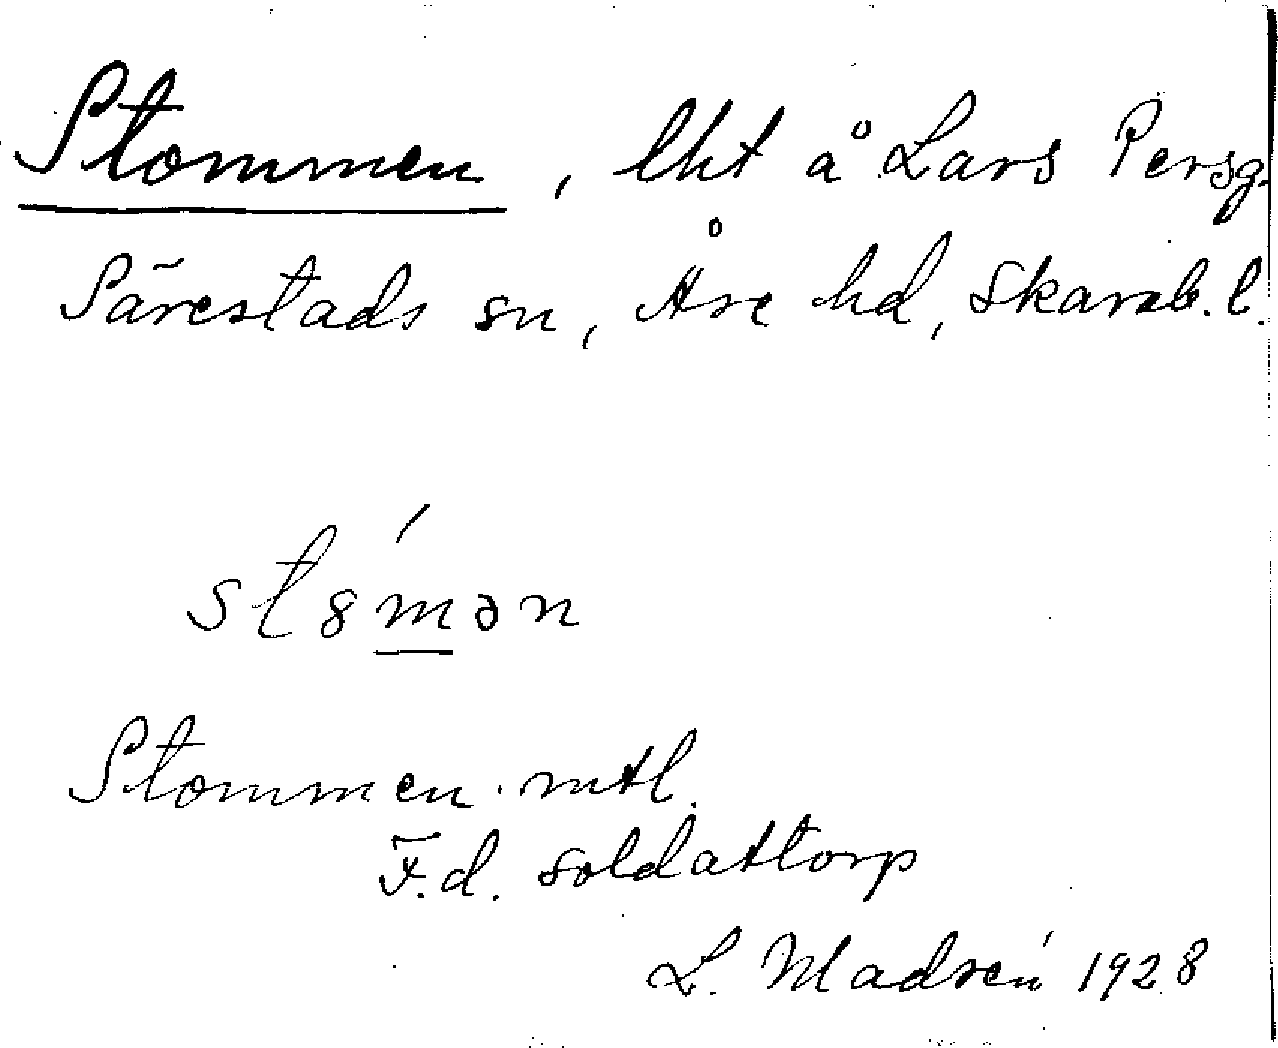 Stommen, lht å Lars Persg.
Särestads sn, Åse hd, Skarab. l.
st8́mən
Stommen mtl.
F.d. soldattorp
L. Madsén 1928